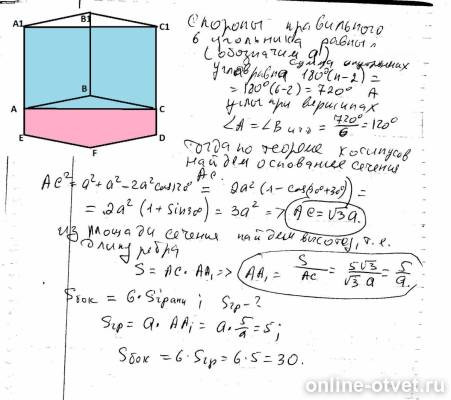 A1 B1 C1
B
A C
E D
F
Стороны правильного
6 угольника равны
(обозначим a)
сумма
угла равна 180°(n-2) =
= 180°(6-2) = 720°
углы при вершинах
∠A = ∠B и т.д = 720°/6 = 120°
Тогда по теореме косинусов
найдем основание сечения
AC.
AC² = a² + a² - 2a² cos120° = 2a² (1 - cos(90°+30°)) =
= 2a² (1 + sin30°) = 3a² => AC = √3 a.
из площади сечения найдем высоту, т.е.
длину ребра
S = AC · AA₁ => AA₁ = S/AC = 5√3/√3 a = 5/a.
Sбок = 6 · Sграни ; Sгр - ?
Sгр = a · AA₁ = a · 5/a = 5;
Sбок = 6 · Sгр = 6 · 5 = 30.
online-otvet.ru